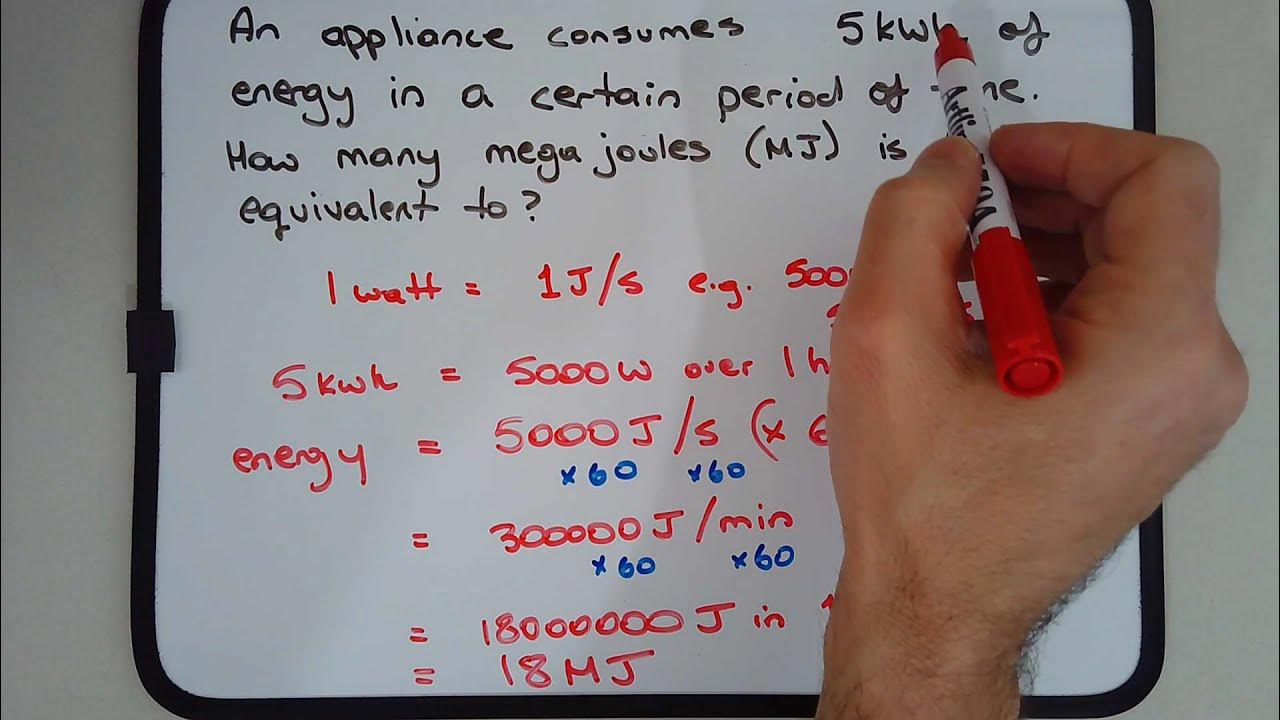 An appliance consumes 5kwh of
energy in a certain period of
How many mega joules (MJ) is
equivalent to?
1 watt = 1J/s e.g.
5kwh = 5000W over 1
energy = 5000J/s (x
x60 x60
= 300000J/min
x60 x60
= 18000000J in
= 18MJ